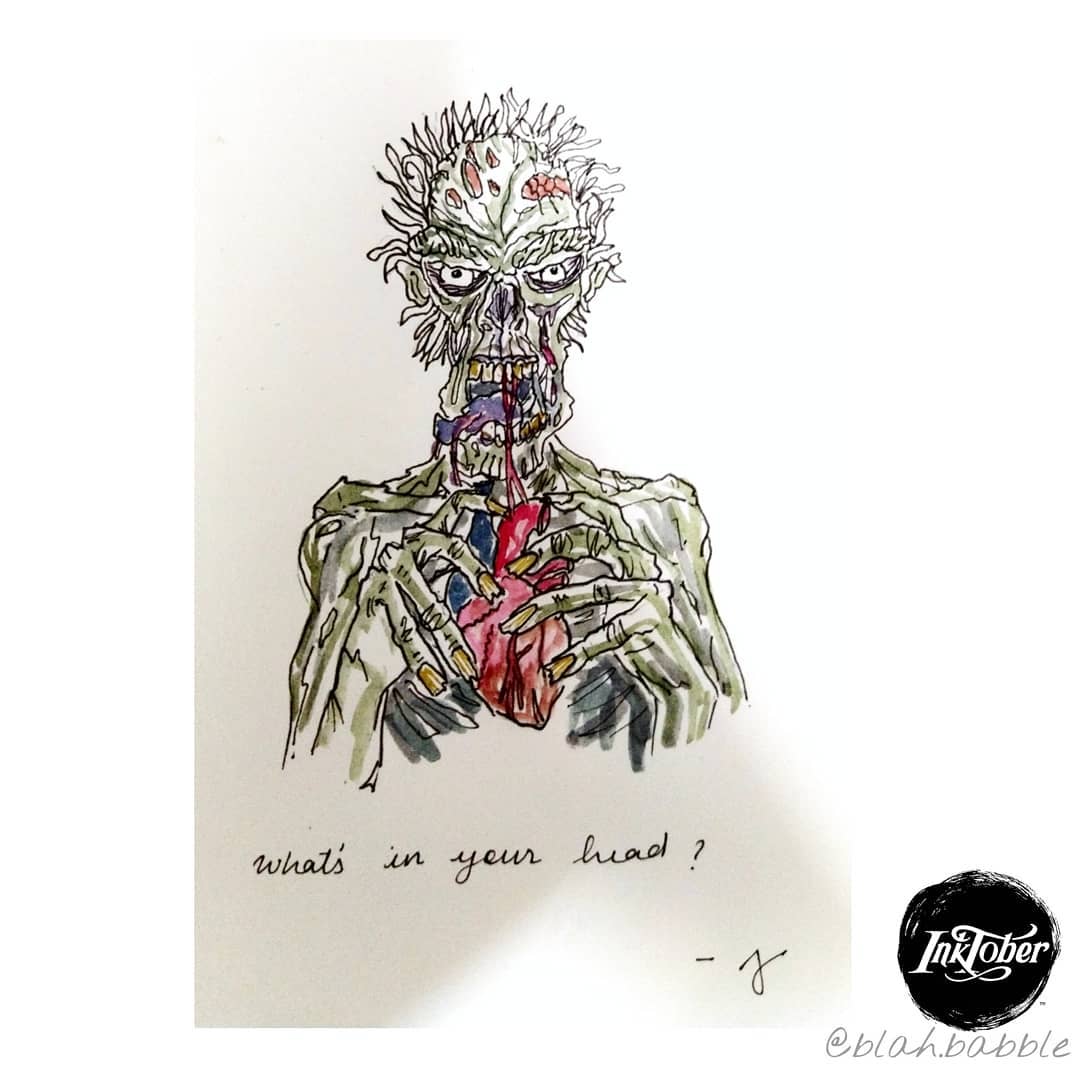 what's in your head ?
- J
InkTober
TM
@blah.babble